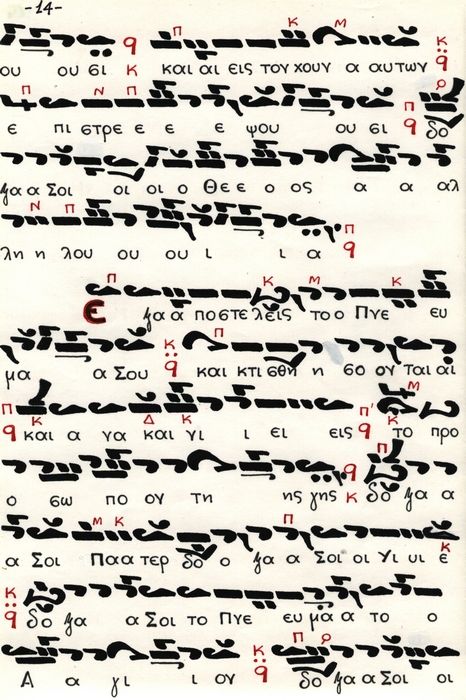 -14-
ου ου σι και αι εις τον χουν α αυτων
ε πι στρε ε ε ε ψου ου σι δο
ξα α Σοι οι οι ο Θε ε ο ος α α αλ
λη η λου ου ου ι ι α
Ε ξα α πο στε λεις το ο Πνε ευ
μα α Σου και κτι σθη η σο ον ται αι
και α να και νι ι ει εις το προ
ο σω πο ον τη ης γης δο ξα α
α Σοι Πα α τερ δο ο ξα α Σοι οι Υι υι ε
δο ξα α Σοι το Πνε ευ μα α το ο
Α α γι ι ον δο ξα α Σοι οι